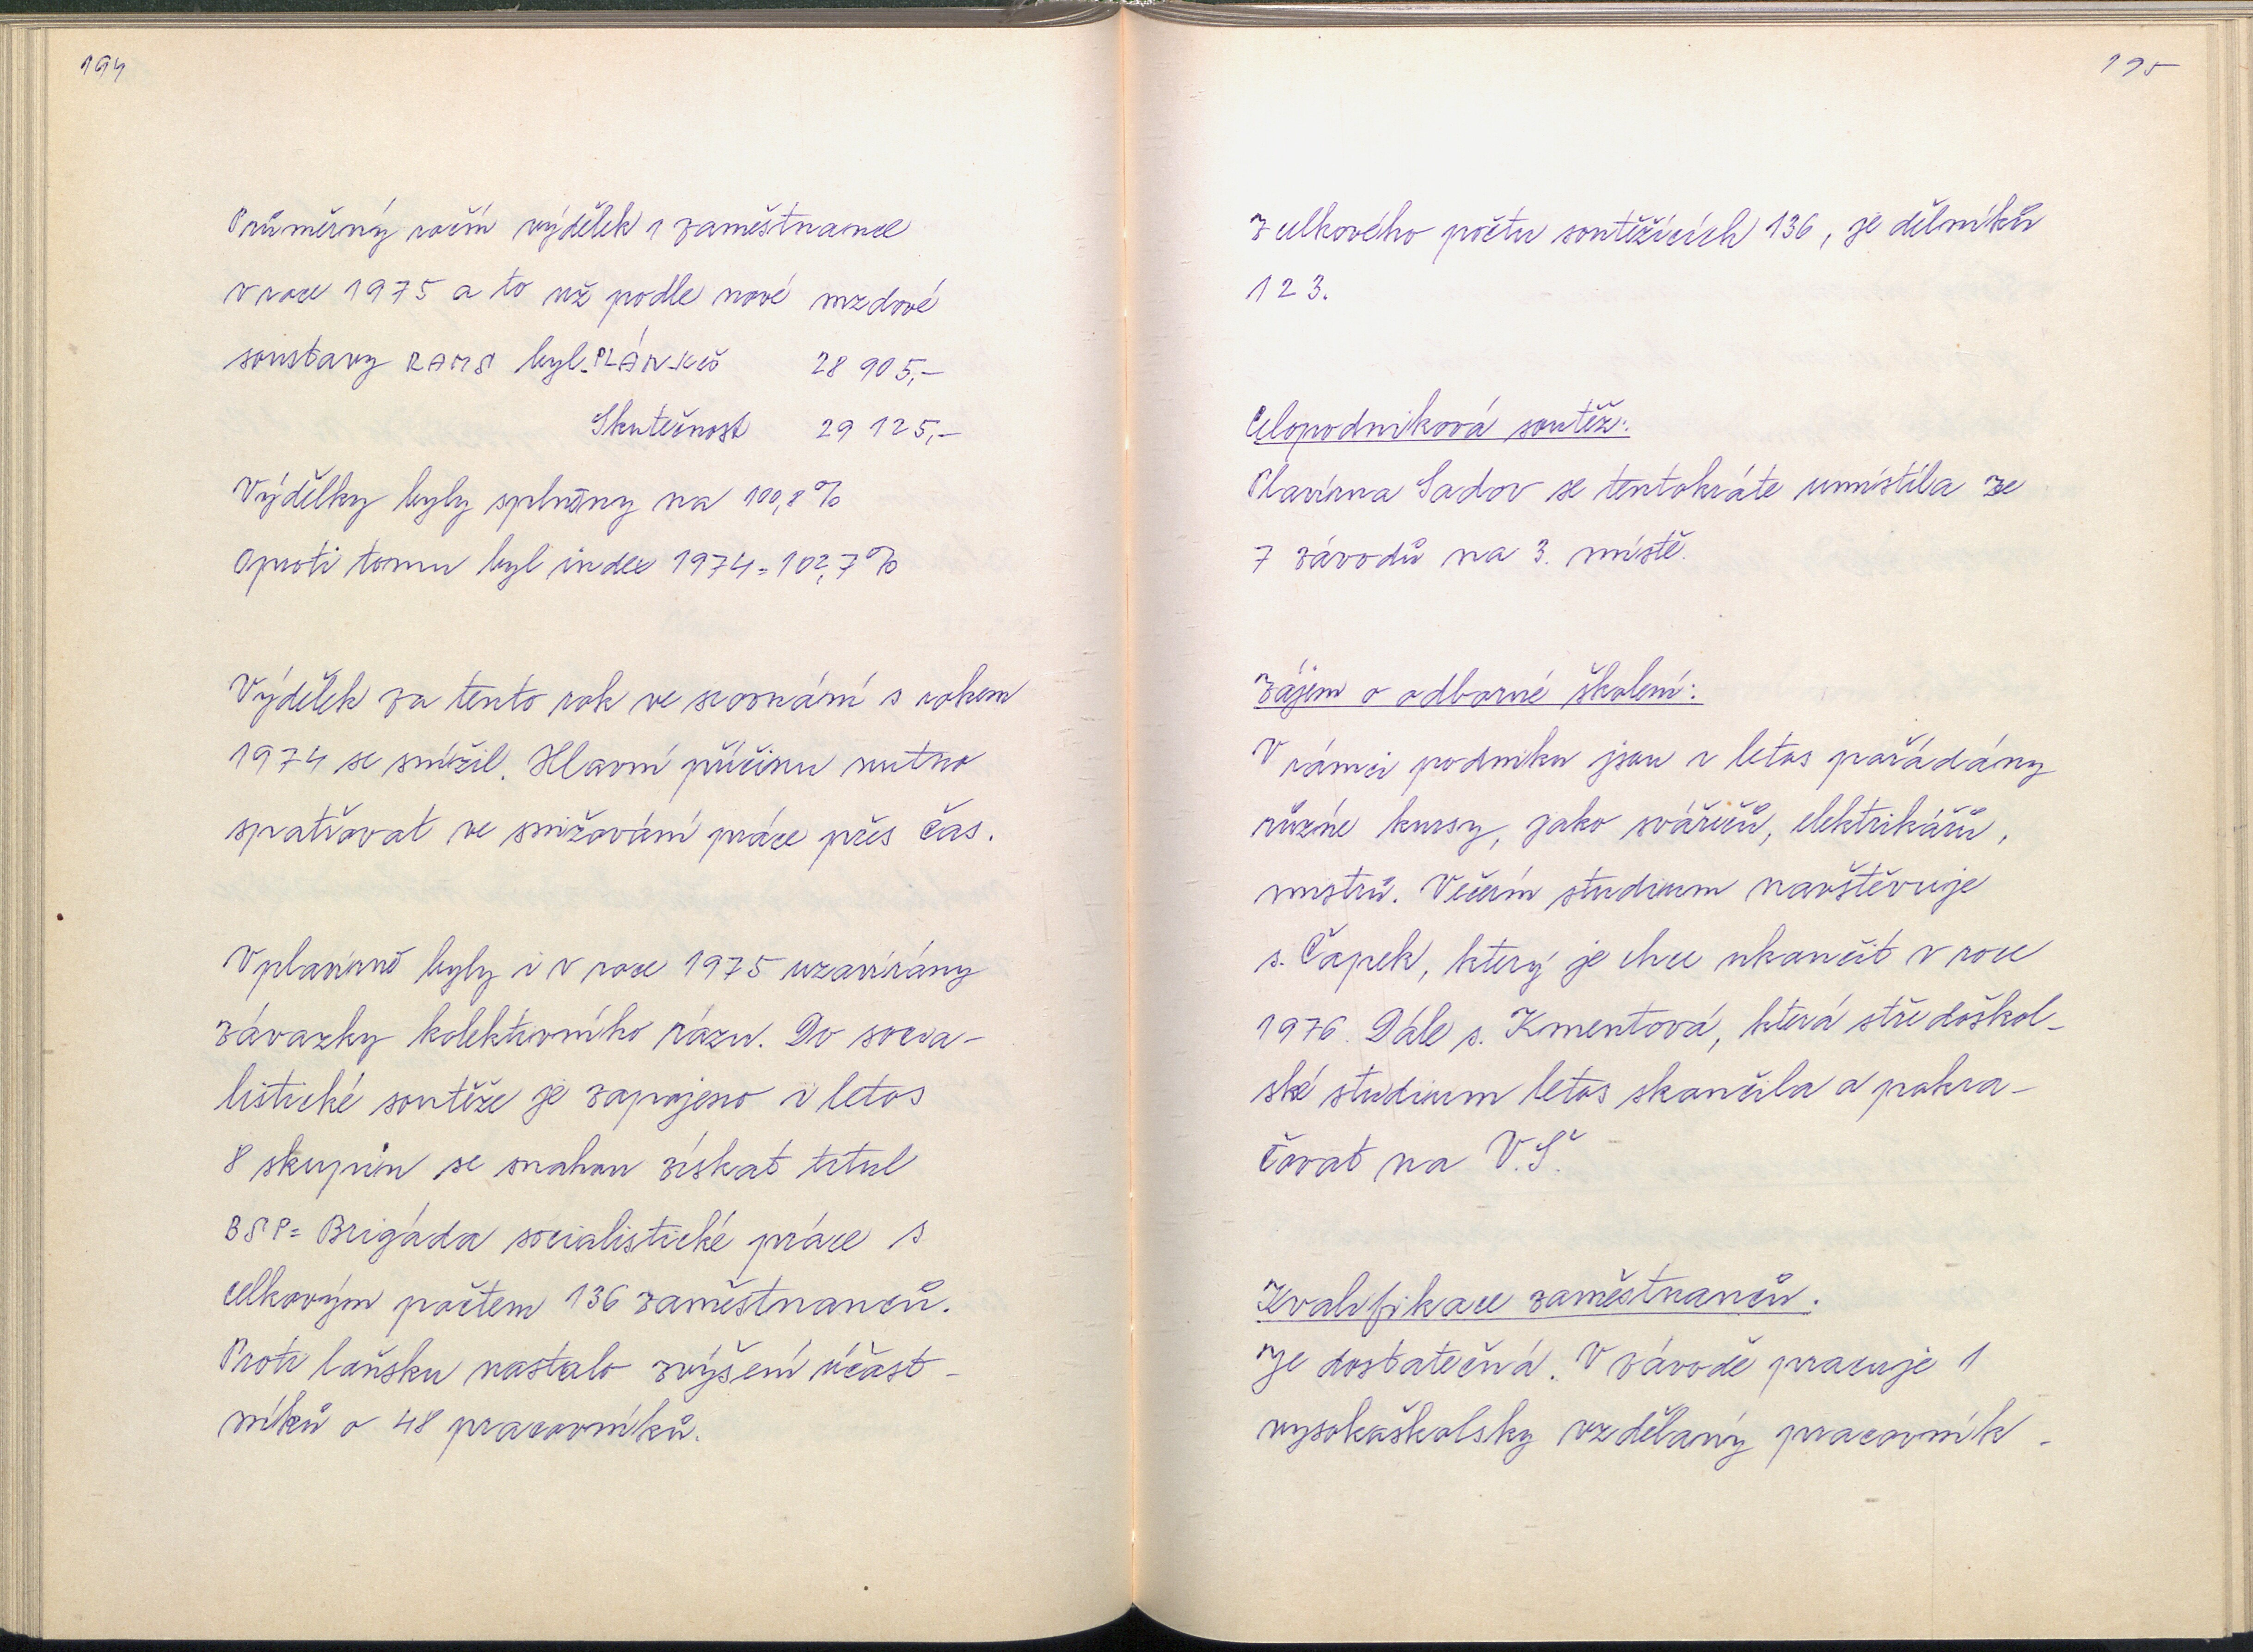 194
Průměrný roční výdělek 1 zaměstnance
v roce 1975 a to už podle nové mzdové
soustavy RAMS byl-PLÁN-Kčs 28 905,-
Skutečnost 29 125,-
Výdělky byly splněny na 100,8 %
Oproti tomu byl index 1974 = 102,7 %
Výdělek za tento rok ve srovnání s rokem
1974 se snížil. Hlavní příčinu nutno
spatřovat ve snižování práce přes čas.
V plavírně byly i v roce 1975 uzavírány
závazky kolektivního rázu. Do socia-
listické soutěže je zapojeno i letos
8 skupin se snahou získat titul
BSP = Brigáda socialistické práce s
celkovým počtem 136 zaměstnanců.
Proti loňsku nastalo zvýšení účast-
níků o 48 pracovníků.
195
Z celkového počtu soutěžících 136, je dělníků
123.
Celopodniková soutěž:
Plavírna Sadov se tentokráte umístila ze
7 závodů na 3. místě.
Zájem o odborné školení:
V rámci podniku jsou i letos pořádány
různé kursy, jako svářečů, elektrikářů,
mistrů. Večerní studium navštěvuje
s. Čapek, který je chce ukončit v roce
1976. Dále s. Kmentová, která středoškol-
ské studium letos skončila a pokra-
čovat na V.Š.
Kvalifikace zaměstnanců.
Je dostatečná. V závodě pracuje 1
vysokoškolsky vzdělaný pracovník -